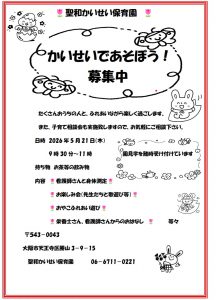 聖和かいせい保育園
かいせいであそぼう！
募集中
たくさんおうちの人と、ふれあいながら楽しく過ごします。
また、子育て相談会も実施致しますので、お気軽にご相談下さい。
日時 2026年5月21日(木)
9時30分～11時
園見学を随時受け付けています
持ち物 お茶等の飲み物
内容 看護師さんと身体測定
お楽しみ会(先生たちと歌遊び等)
おやこふれあい遊び
栄養士さん、看護師さんからのおはなし 等々
〒543-0043
大阪市天王寺区勝山3-9-15
聖和かいせい保育園 06-6711-0221